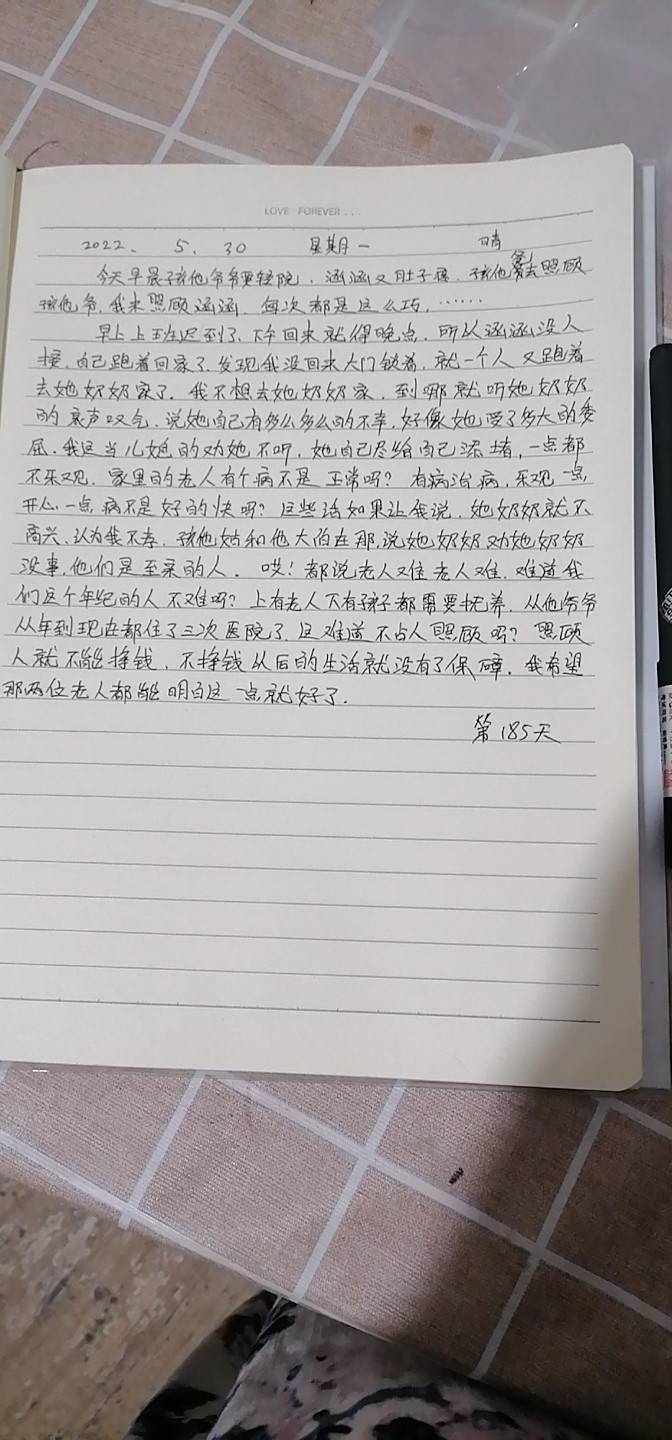 LOVE FOREVER...
2022、 5、 30 星期一 晴
今天早晨孩他爷爷要住院，涵涵又肚子疼，孩他爸去照顾
孩他爷，我来照顾涵涵，每次都是这么巧，……
早上上班迟到了，下午回来就得晚点，所以涵涵没人
接，自己跑着回家了，发现我没回来大门锁着，就一个人又跑着
去她奶奶家了。我不想去她奶奶家，到哪就听她奶奶
的哀声叹气，说她自己有多么多么的不幸，好像她受了多大的委
屈，我这当儿媳的劝她不听，她自己尽给自己添堵，一点都
不乐观，家里的老人有个病不是正常吗？有病治病，乐观一点
开心一点病不是好的快吗？这些话如果让我说，她奶奶就不
高兴，认为我不孝，孩他姑和他大伯在那，说她奶奶劝她奶奶
没事，他们是至亲的人。哎！都说老人难老人难，难道我
们这个年纪的人不难吗？上有老人下有孩子都需要抚养，从他爷爷
从年到现在都住了三次医院了，这难道不占人照顾吗？照顾
人就不能挣钱，不挣钱从后的生活就没有了保障，我希望
那两位老人都能明白这一点就好了．
第185天